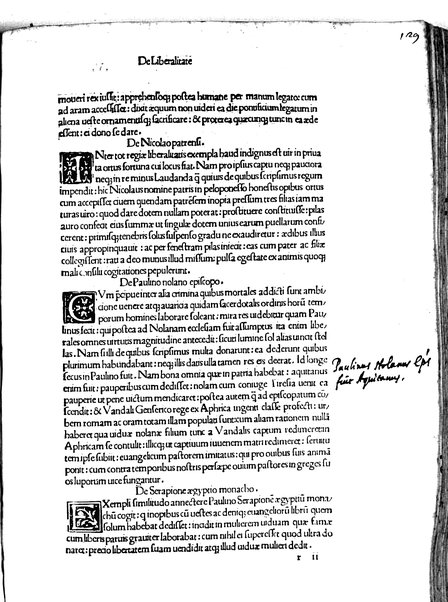 129
De Liberalitate
moueri rex iussit: apprehensoq; postea humane per manum legato: cum
ad aram accessisset: dixit æquum non uideri ea die pontificium legatum in
aliena ueste ornamentisq; sacrificare: & proterea quæcunq; tunc in ea æde
essent: ei dono se dare.
De Nicolao patrensi.
INter tot regiæ liberalitatis exempla haud indignus est uir in priua
ta ortus fortuna cui locus fiat. Nam pro ipsius captu neq; pauciora
neq; in re minus Laudanda q̃ quiuis de quibus scripsimus regum
impendit: hic Nicolaus nomine patris in peloponesso honestis opibus ortus
cum accepisset ciuem quendam patrẽsem inopia pressum tres filias iam ma
turas uiro: quod dare dotem nullam poterat: prostituere constituisse: pilas
auro confecit eius summæ ut singulæ dotem unius earum puellarum confi
cerent: primisq; tenebris solus suspenso gradu ne exaudiretur: ædibus illius
uiri appropinquauit: ac per fenestram pilas iniecit: eas cum pater ac filiæ
collegissent: rati a deo munus illud missum: pulsa egestate ex animis quoq;
mali consilii cogitationes pepulerunt.
De Paulino nolano episcopo.
CVm p̃cipue inter alia crimina quibus mortales addicti sunt ambi
cione uenere atq; auaritia quidam sacerdotalis ordinis horũ tem
porum homines laborare soleant: mira res uidebitur quam Pau
linus fecit: qui postea ad Nolanam ecclesiam fuit assumptus ita enim libe
rales omnes uirtutis magnitudine antecedit: sicuti lumine sol alias uincit stel
las. Nam si illi de quibus scripsimus multa donarunt: ea dederunt quibus
plurimum habundabant: neq; illis datis ulla tamen res eis deerat. Id longe
secus in Paulino fuit. Nam bona omnia quæ in patria habebat: aquitanus
enim fuit: pauperibus cum dedisset: nolam cum coniuge Tresia uenit ea
pauperie ut pene uictum mendicaret: postea autem q̃ ad episcopatum cõ
scendit: & Vandali Genserico rege ex Aphrica urgenti classe profecti: ur
bem romam ac oram totam illam populati sunt: cum aliam rationem nullã
haberet qua uiduæ nolanæ filium tunc a Vandalis captum redimeret: in
Aphricam se contulit: illicq; ut captiuum iuuenem matri redimeret: seruitu
tem ipse subiit: euangelicum pastorem imitatus: qui pro ouibus suis animã
ponit: cum contra temporibus nostris persæpe ouium pastores in greges su
os luporum uice fungantur.
Paulinus Nolanus Ep̃s
fuit Aquitanus.
De Serapione ægyptio monacho.
EXempli similitudo annectere Paulino Serapionẽ ægyptiũ mona
chũ cogit: q inopibus cũ uestes ac deniq; euangeliorũ librũ quem
solum habebat dedisset: incidit in mulierem uiduam quæ famæ
cum liberis paruis grauiter laborabat: cum nihil ei superesset quod ultra do
naret: precio libertatem suam uendidit atq; illud uiduæ mulieri dedit.
r ii